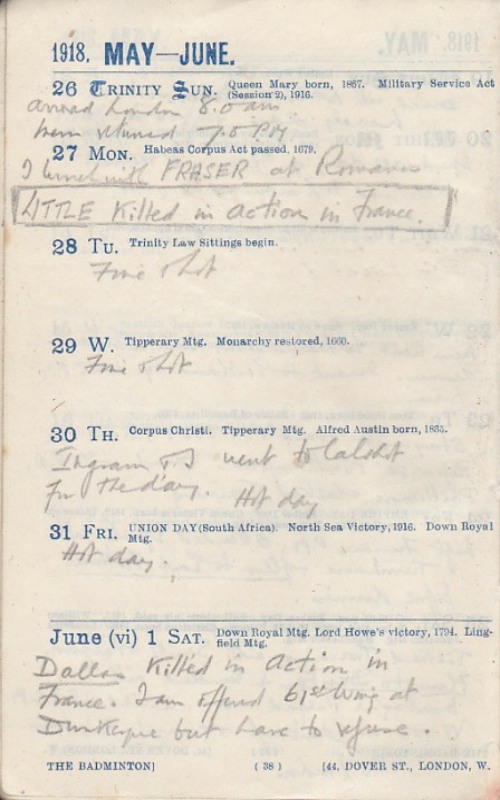 1918. MAY—JUNE.
26 TRINITY SUN. Queen Mary born, 1867. Military Service Act
(Session 2), 1916.
arrived London 8.0 am
7.5 PM
27 MON. Habeas Corpus Act passed, 1679.
I lunch with FRASER at Romanos
LITTLE Killed in action in France.
28 TU. Trinity Law Sittings begin.
Fine & hot
29 W. Tipperary Mtg. Monarchy restored, 1660.
Fine & hot
30 TH. Corpus Christi. Tipperary Mtg. Alfred Austin born, 1835.
Ingram & I went to Calshot
for the day. Hot day
31 FRI. UNION DAY (South Africa). North Sea Victory, 1916. Down Royal
Mtg.
Hot day.
June (vi) 1 SAT. Down Royal Mtg. Lord Howe's victory, 1794. Ling-
field Mtg.
Dallas Killed in Action in
France. I am offered 61st Wing at
Dunkerque but have to refuse.
THE BADMINTON] ( 38 ) [44, DOVER ST., LONDON, W.